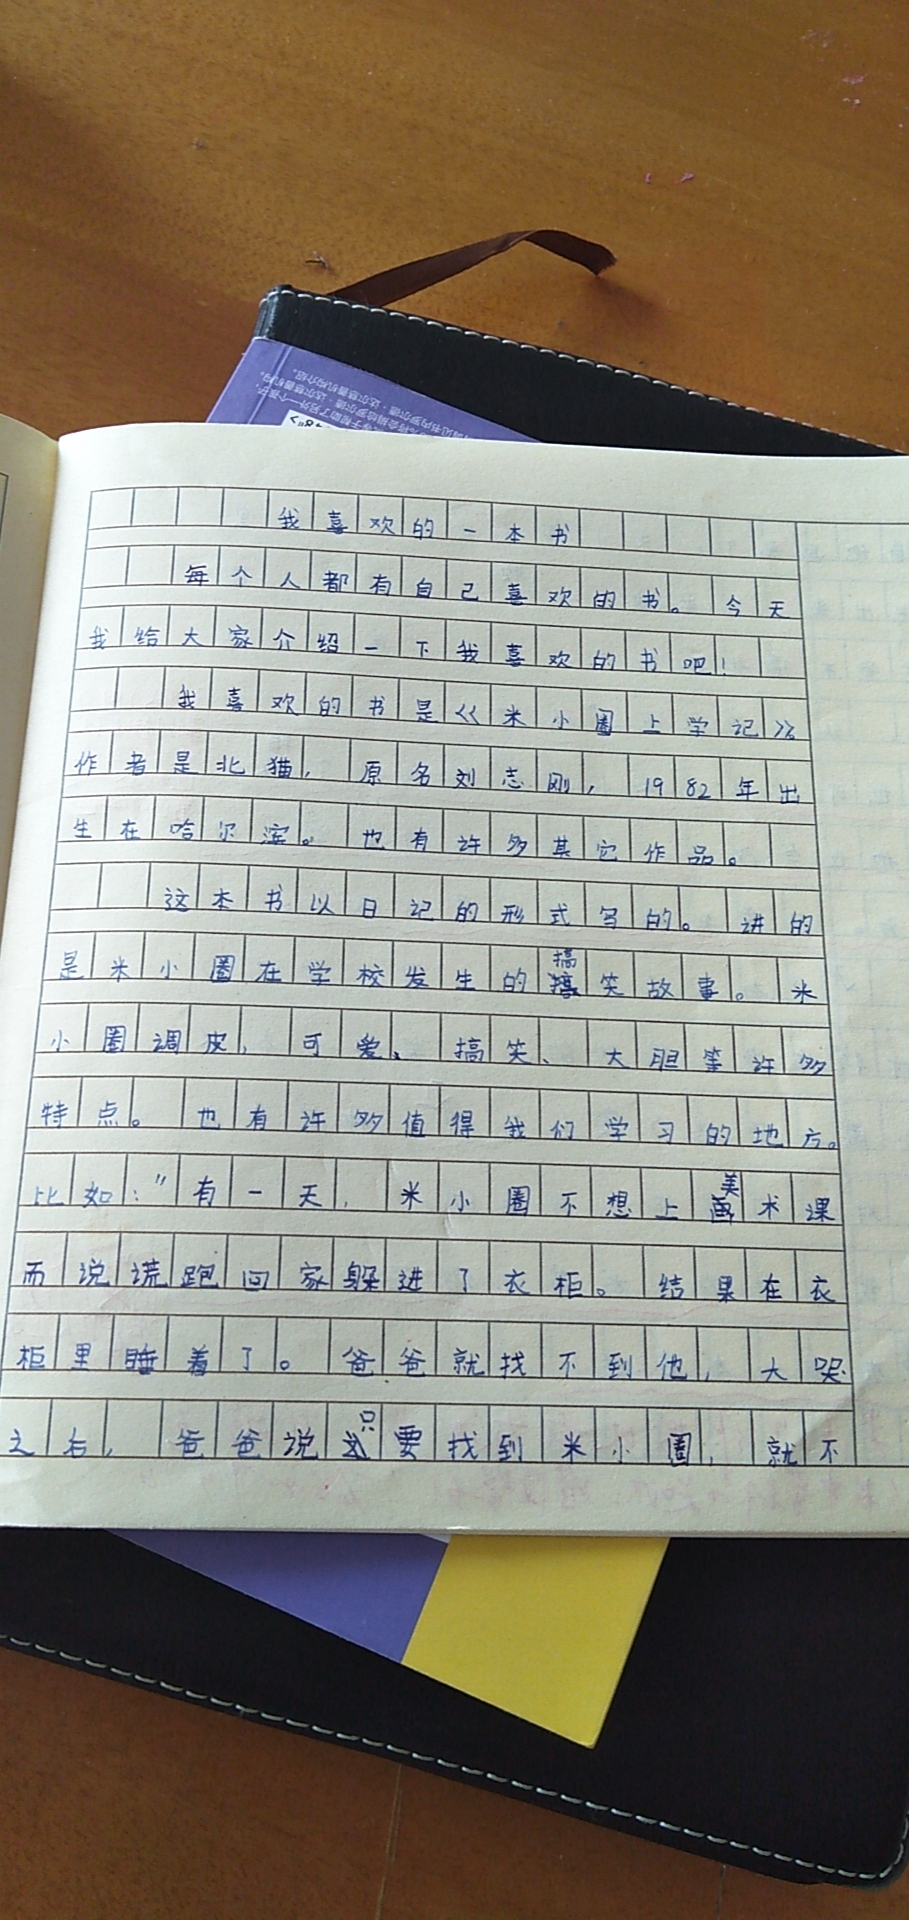 我喜欢的一本书
每个人都有自己喜欢的书。今天
我给大家介绍一下我喜欢的书吧！
我喜欢的书是《米小圈上学记》
作者是北猫，原名刘志刚，1982年出
生在哈尔滨。也有许多其它作品。
这本书以日记的形式写的。讲的
是米小圈在学校发生的搞笑故事。米
小圈调皮、可爱、搞笑、大胆等许多
特点。也有许多值得我们学习的地方。
比如："有一天，米小圈不想上美术课
而说谎跑回家躲进了衣柜。结果在衣
柜里睡着了。爸爸就找不到他，大哭
之后，爸爸说只要找到米小圈，就不